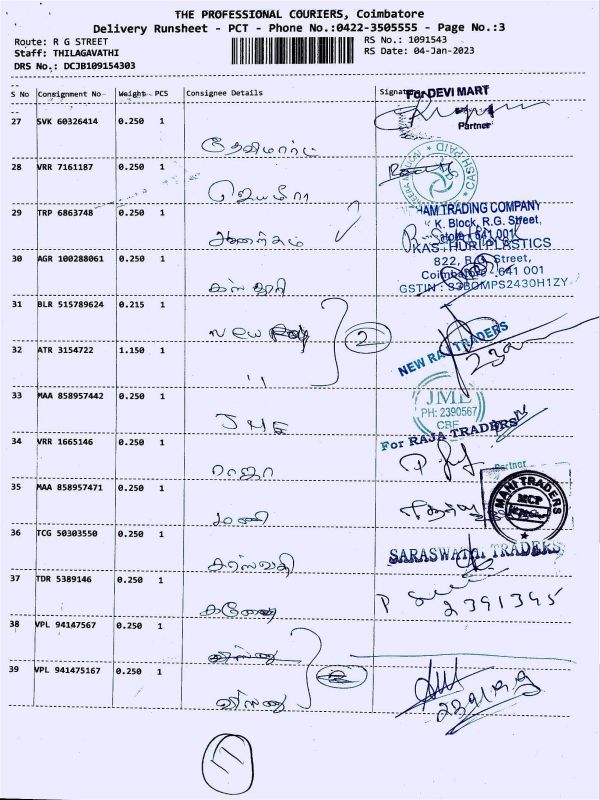 THE PROFESSIONAL COURIERS, Coimbatore
Delivery Runsheet - PCT - Phone No.:0422-3505555 - Page No.:3
Route: R G STREET
RS No.: 1091543
Staff: THILAGAVATHI
RS Date: 04-Jan-2023
DRS No.: DCJB109154303
S No Consignment No Weight PCS Consignee Details Signature
For DEVI MART
27 SVK 60326414 0.250 1
Partner
தேவிமார்ட்
CASH PAID
28 VRR 7161187 0.250 1
ஜெயமீரா
29 TRP 6863748 0.250 1
HAM TRADING COMPANY
K. Block, R.G. Street,
641 001
30 AGR 100288061 0.250 1
KASTHURI PLASTICS
822, R.G. Street,
Coimbatore - 641 001
GSTIN : 33BOMPS2430H1ZY
கஸ்தூரி
31 BLR 515789624 0.215 1
NEW
2
NEW RAJ TRADERS
32 ATR 3154722 1.150 1
"
33 MAA 858957442 0.250 1
JME
JME
PH: 2390567
CBE
34 VRR 1665146 0.250 1
For RAJA TRADERS
ராஜா
Partner
35 MAA 858957471 0.250 1
மணி
MANI TRADERS
MCP
36 TCG 50303550 0.250 1
SARASWATHI TRADERS
சரஸ்வதி
37 TDR 5389146 0.250 1
2391395
38 VPL 94147567 0.250 1
39 VPL 941475167 0.250 1
விஸ்ணு